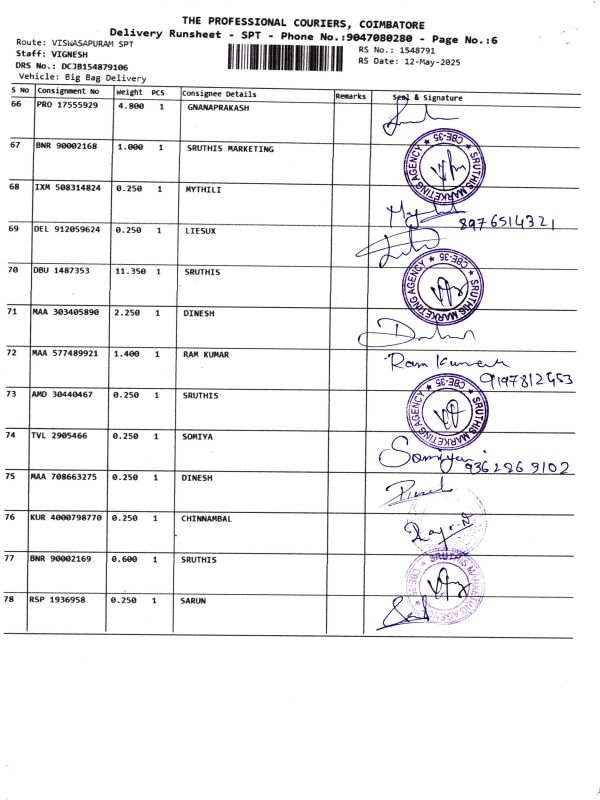 THE PROFESSIONAL COURIERS, COIMBATORE
Delivery Runsheet - SPT - Phone No.:9047080280 - Page No.:6
Route: VISWASAPURAM SPT
Staff: VIGNESH
DRS No.: DCJB154879106
Vehicle: Big Bag Delivery
RS No.: 1548791
RS Date: 12-May-2025
S No Consignment No Weight PCS Consignee Details Remarks Seal & Signature
66 PRO 17555929 4.800 1 GNANAPRAKASH
67 BNR 90002168 1.000 1 SRUTHIS MARKETING
SRUTHIS MARKETING AGENCY ★ CBE-35 ★
68 IXM 508314824 0.250 1 MYTHILI
8976514321
69 DEL 912059624 0.250 1 LIESUX
70 DBU 1487353 11.350 1 SRUTHIS
SRUTHIS MARKETING AGENCY ★ CBE-35 ★
71 MAA 303405890 2.250 1 DINESH
72 MAA 577489921 1.400 1 RAM KUMAR
Ram Kumar
73 AMD 30440467 0.250 1 SRUTHIS
SRUTHIS MARKETING AGENCY ★ CBE-35 ★
74 TVL 2905466 0.250 1 SOMIYA
Somiya
9362869102
75 MAA 708663275 0.250 1 DINESH
76 KUR 4000798770 0.250 1 CHINNAMBAL
77 BNR 90002169 0.600 1 SRUTHIS
SRUTHIS MARKETING AGENCY ★ CBE-35 ★
78 RSP 1936958 0.250 1 SARUN